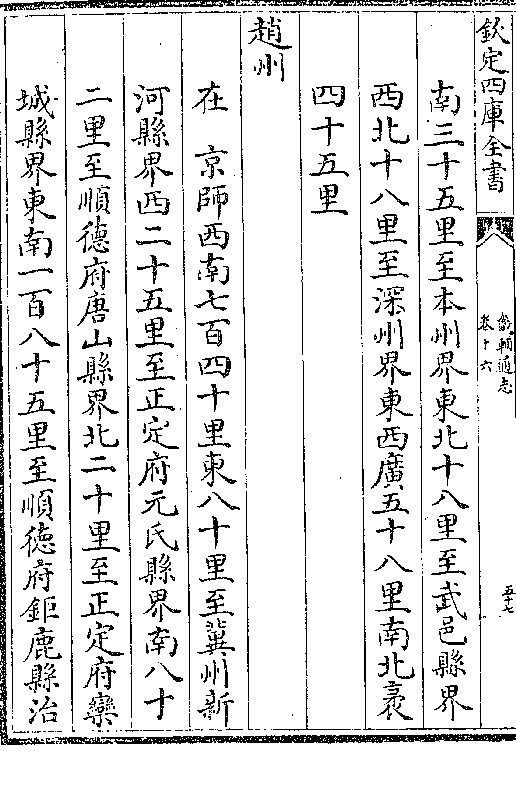 欽定四庫全書
畿輔通志
卷十六
五十七
南三十五里至本州界東北十八里至武邑縣界
西北十八里至深州界東西廣五十八里南北袤
四十五里
趙州
在 京師西南七百四十里東八十里至冀州新
河縣界西二十五里至正定府元氏縣界南八十
二里至順德府唐山縣界北二十里至正定府欒
城縣界東南一百八十五里至順德府鉅鹿縣治